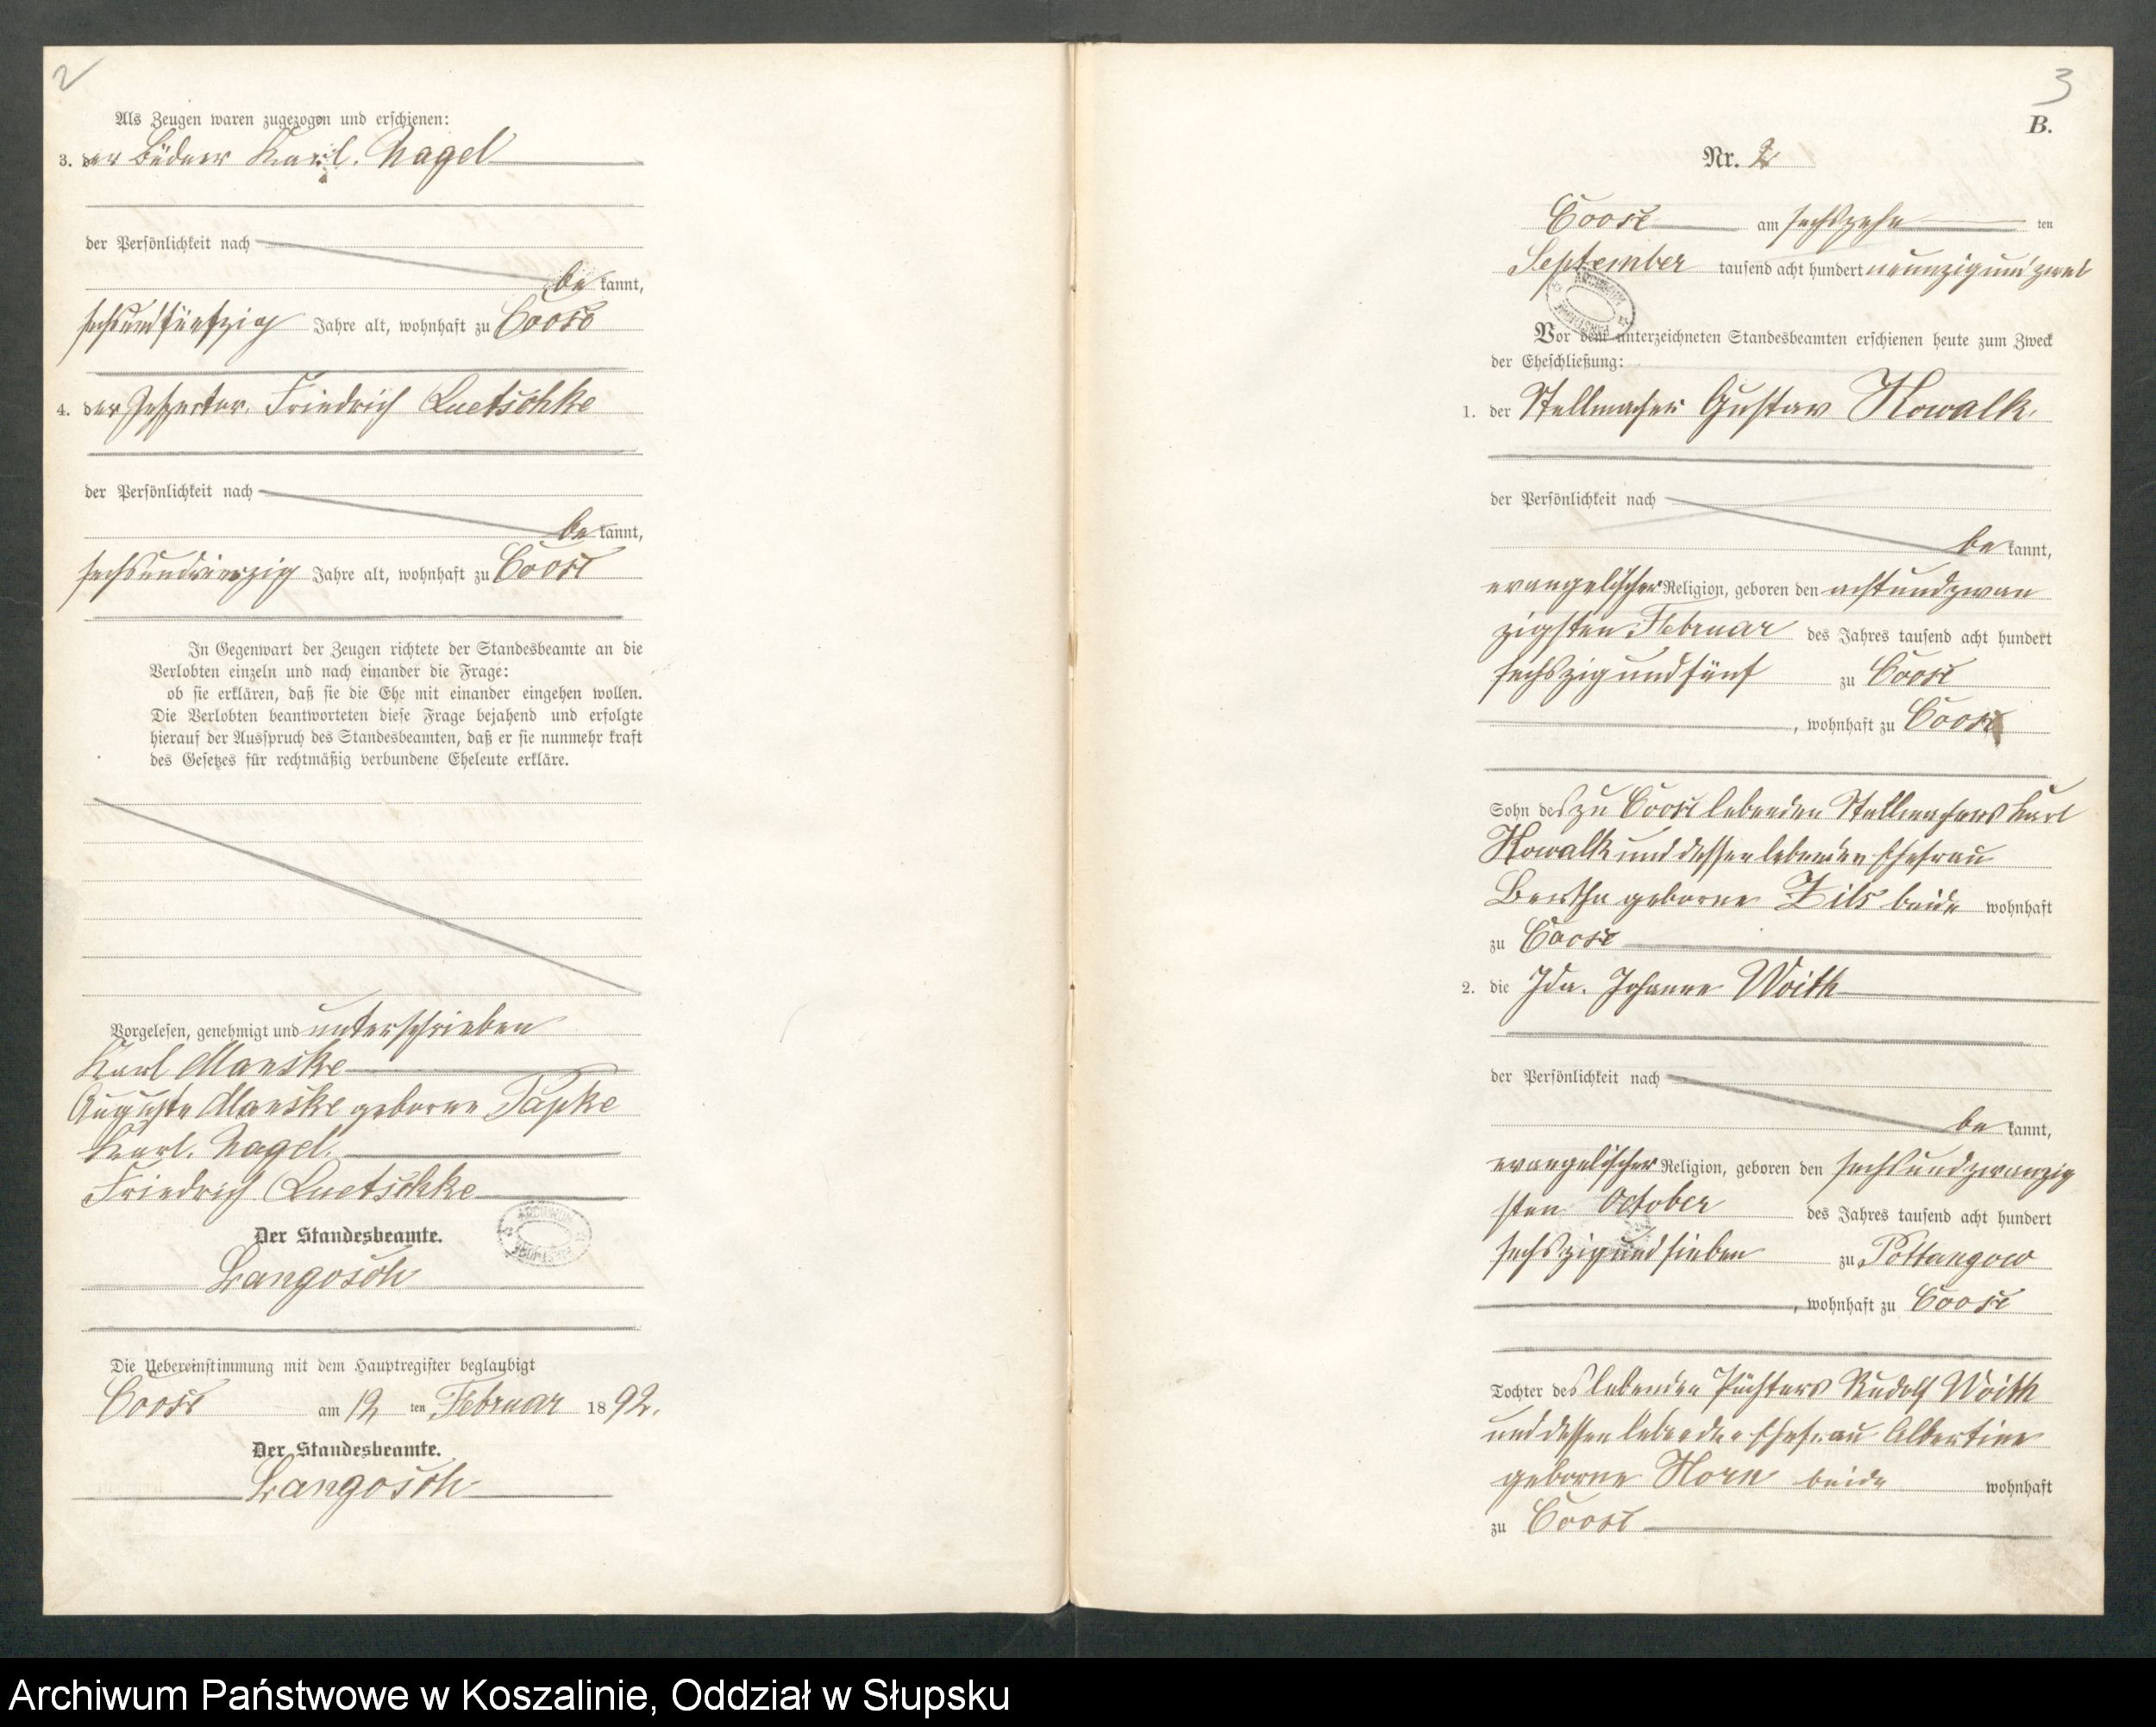 2
Als Zeugen waren zugezogen und erschienen:
3. der Büdner Karl. Nagel
der Persönlichkeit nach
be kannt,
sechsundfünfzig Jahre alt, wohnhaft zu Coose
4. der Inspector. Friedrich Luetschke
der Persönlichkeit nach
be kannt,
sechsundvierzig Jahre alt, wohnhaft zu Coose
In Gegenwart der Zeugen richtete der Standesbeamte an die
Verlobten einzeln und nach einander die Frage:
ob sie erklären, daß sie die Ehe mit einander eingehen wollen.
Die Verlobten beantworteten diese Frage bejahend und erfolgte
hierauf der Ausspruch des Standesbeamten, daß er sie nunmehr kraft
des Gesetzes für rechtmäßig verbundene Eheleute erkläre.
Vorgelesen, genehmigt und unterschrieben
Karl Manske
Auguste Manske geborne Papke
Karl. Nagel.
Friedrich Luetschke
Der Standesbeamte.
Langosch
Die Uebereinstimmung mit dem Hauptregister beglaubigt
Coose am 12 ten Februar 1892.
Der Standesbeamte.
Langosch
3
B.
Nr. 2
Coose am sechszehn ten
September tausend acht hundert neunzig und zwei
Vor dem unterzeichneten Standesbeamten erschienen heute zum Zweck
der Eheschließung:
1. der Stellmacher Gustav Kowalk.
der Persönlichkeit nach
be kannt,
evangelischer Religion, geboren den achtundzwan
zigsten Februar des Jahres tausend acht hundert
sechszig und fünf zu Coose
, wohnhaft zu Coose
Sohn des zu Coose lebenden Stellmachers Karl
Kowalk und dessen lebenden Ehefrau
Bertha geborne Zils beide wohnhaft
zu Coose
2. die Ida. Johanne Woith
der Persönlichkeit nach
be kannt,
evangelischer Religion, geboren den sechsundzwanzig
sten October des Jahres tausend acht hundert
sechszig und sieben zu Pottangow
, wohnhaft zu Coose
Tochter des lebenden Pächters Rudolf Woith
und dessen lebenden Ehefrau Albertine
geborne Horn beide wohnhaft
zu Coose
Archiwum Państwowe w Koszalinie, Oddział w Słupsku